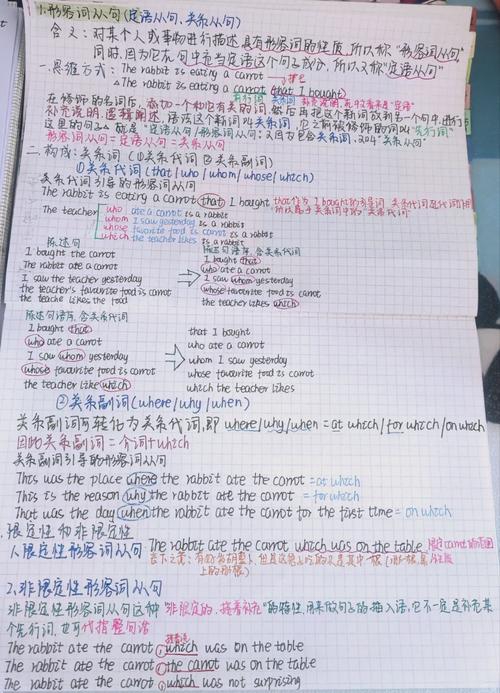 1.形容词从句(定语从句、关系从句)
含义:对某个人或事物进行描述,具有形容词的性质,所以称"形容词从句"
同时,因为它在句中充当定语这个句子成分,所以又称"定语从句"
一.思维方式:The rabbit is eating a carrot
The rabbit is eating a carrot (that I bought)
先行词 关系词
在修饰的名词后,添加一个和它有关的词,然后再把这个新词放到另一个句中,进行
补充说明,逻辑阐述,语法这个新词叫关系词,它之前被修饰的词叫"先行词"
这里的句2 就是"定语从句/形容词从句;又因为包含关系词,又叫"关系从句"
形容词从句=定语从句=关系从句
二.构成:关系词(①关系代词 ②关系副词)
①关系代词(that/who/whom/whose/which)
关系代词引导的形容词从句
The rabbit is eating a carrot that I bought
The teacher who ate a carrot is a rabbit
whom I saw yesterday is a rabbit
whose favourite food is carrot is a rabbit
which the teacher likes is a rabbit
陈述句
陈述句语序,含关系代词
I bought the carrot
I bought that
The rabbit ate a carrot
who ate a carrot
I saw the teacher yesterday
I saw whom yesterday
the teacher's favourite food is carrot
whose favourite food is carrot
the teache likes the food
the teacher likes which
陈述句语序,含关系代词
I bought that
that I bought
who ate a carrot
who ate a carrot
I saw whom yesterday
whom I saw yesterday
whose favourite food is carrot
whose favourite food is carrot
the teacher like which
which the teacher likes
②关系副词(where/why/when)
关系副词可转化为关系代词,即where/why/when=at which/for which/on which
因此关系副词=介词+which
关系副词引导的形容词从句
This was the place where the rabbit ate the carrot =at which
This is the reason why the rabbit ate the carrot =for which
That was the day when the rabbit ate the carrot for the first time=on which
限定性和非限定性
1.限定性形容词从句 The rabbit ate the carrot which was on the table 限定carrot的范围
2.非限定性形容词从句
非限定性形容词从句这种"非限定的,接着补充"的特性,用来做句子的插入语,它不一定是补充某
个先行词,也可代指整句话
The rabbit ate the carrot, which was on the table
The rabbit ate the carrot, the carrot was on the table
The rabbit ate the carrot, which was not surprising